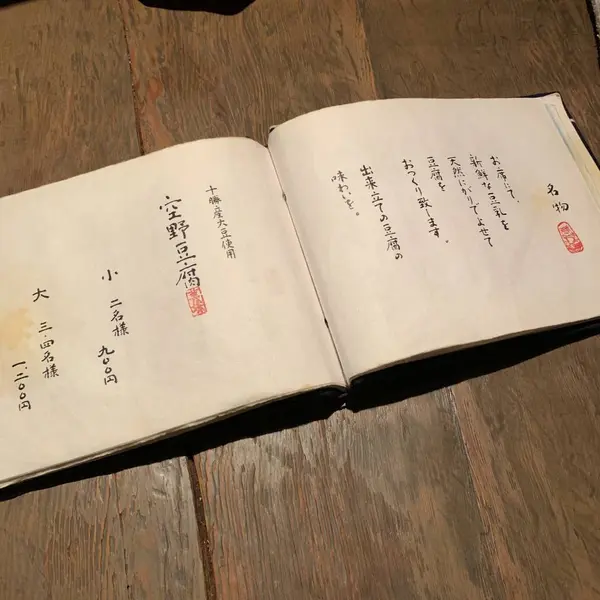 名物
お席にて、
新鮮な豆乳を
天然にがりでよせて
豆腐を
おつくり致します。
出来立ての豆腐の
味わいを。
十勝産大豆使用
空野豆腐
小 二名様 九〇〇円
大 三.四名様 一、二〇〇円